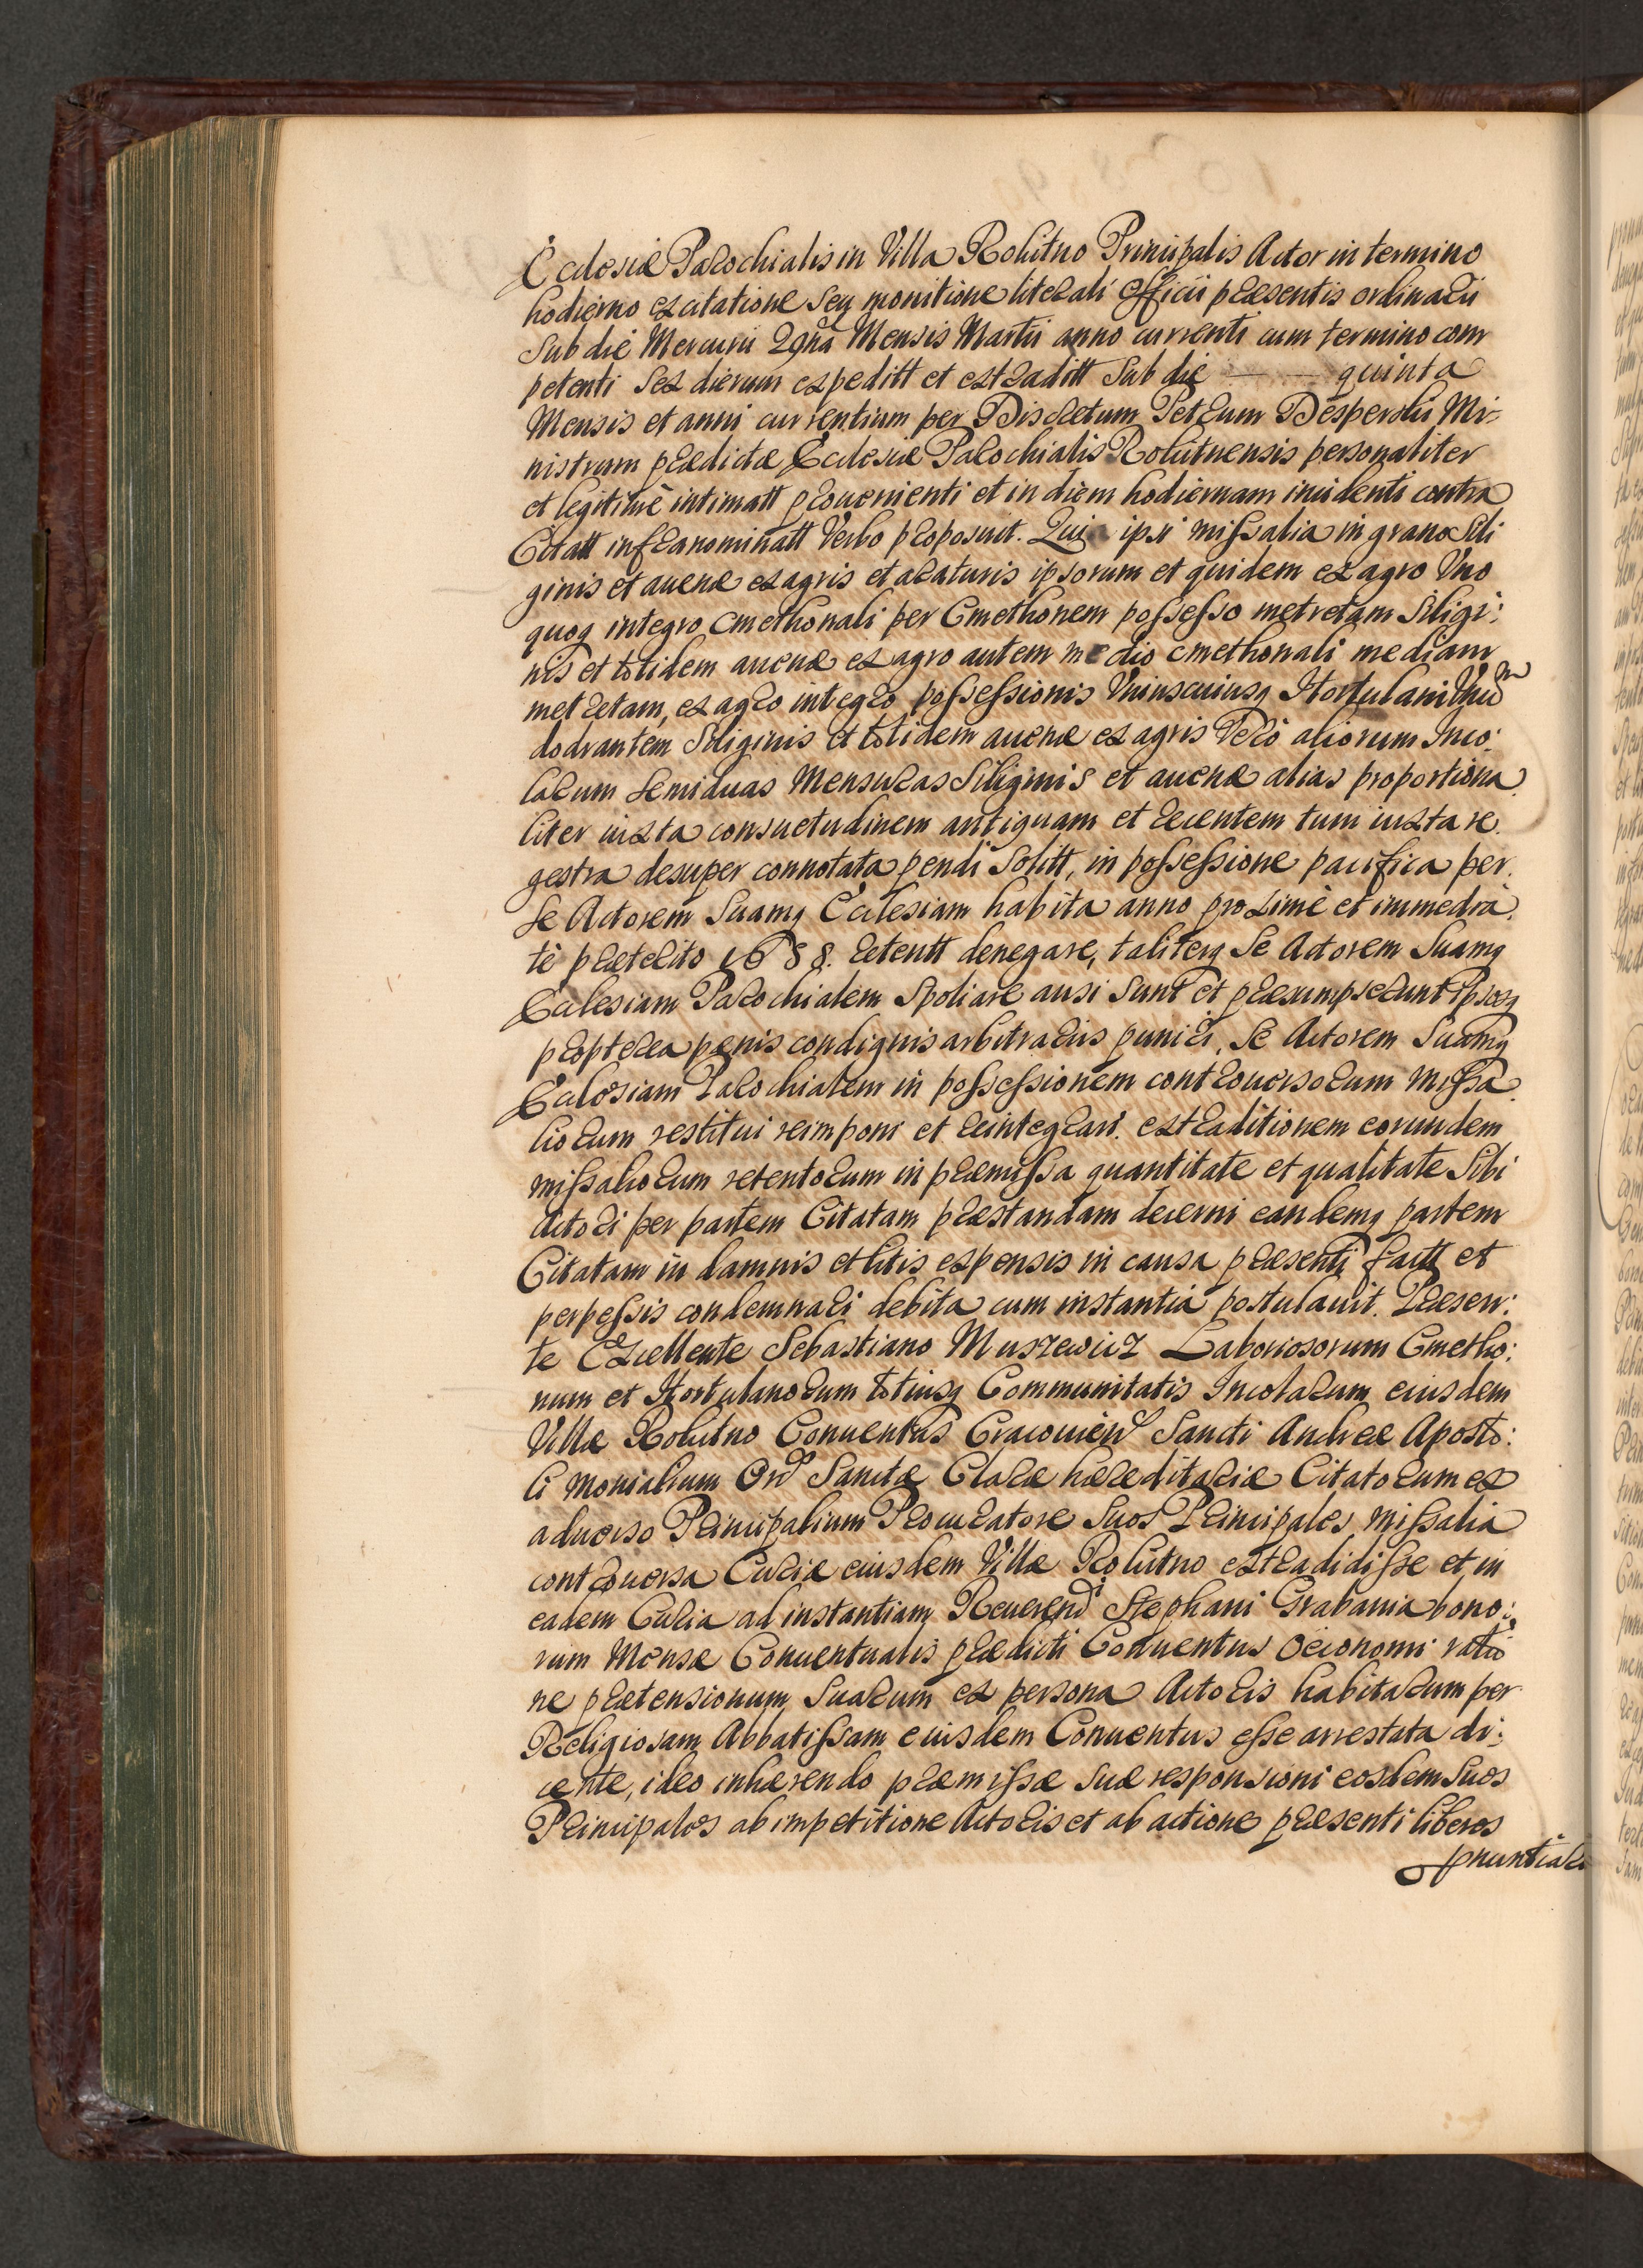 Ecclesiæ Parochialis in Villa Rokitno Principalis Actor in termino
hodierno ex citatione seu monitione literali Officii præsentis ordinarii
Sub die Mercurii 2da Mensis Martii anno currenti cum termino com
petenti Sex dierum expeditt et extraditt Sub die quinta
Mensis et anni currentium per Discretum Petrum Mi=
nistrum prædictæ Ecclesiæ Parochialis Rokitnensis personaliter
et legitimè intimatt prouenienti et in diem hodiernam incidenti contra
Citatt infranominatt Verbo proposuit. Quia ipsi missalia in grano Sili
ginis et auenæ ex agris et araturis ipsorum et quidem ex agro Vno
quoq integro cmethonali per Cmethonem possesso metretam Siligi:
nis et totidem auenæ ex agro autem medio cmethonali mediam
metretam, ex agro integro possessionis Vniuscuiusq Hortulani Vnum
dodrantem Siliginis et totidem auenæ ex agris Verò aliorum Inco:
larum semiduas Mensuras Siliginis et auenæ alias proportiona
liter iuxta consuetudinem antiquam et recentem tum iuxta re
gestra desuper connotata pendi Solitt, in possessione pacifica per
Se Actorem Suamq Ecclesiam habita anno proximè et immedia
tè præterito 1688. retentt denegare, taliterq Se Actorem Suamq
Ecclesiam Parochialem Spoliare ausi Sunt et præsumpserunt Ipsosq
propterea pænis condignis arbitrariis puniri, Se Actorem Suamq
Ecclesiam Parochialem in possessionem controuersorum Missa
liorum restitui reimponi et reintegrari. extraditionem eorundem
missaliorum retentorum in præmissa quantitate et qualitate Sibi
Actori per partem Citatam præstandam decerni eandemq partem
Citatam in damnis et litis expensis in causa præsenti factt et
perpessis condemnari debita cum instantia postulauit. Præsen:
te Excellente Sebastiano Muszewicz Laboriosorum Cmetho:
num et Hortulanorum totiusq Communitatis Incolarum eiusdem
Villæ Rokitno Conuentus Cracouien Sancti Andreæ Aposto:
li Monialium Ord Sanctæ Claræ hæreditariæ Citatorum ex
aduerso Principalium Procuratore Suos Principales missalia
controuersa Curiæ eiusdem Villæ Rokitno extradidisse et in
eadem Curia ad instantiam Reuerendi Stephani Grabania bono:
rum Mensæ Conuentualis prædicti Conuentus Oeconomi ratio
ne prætensionum Suarum ex persona Actoris habitarum per
Religiosam Abbatissam eiusdem Conuentus esse arrestata di:
cente, ideo inhærendo præmissæ Suæ responsioni eosdem Suos
Principales ab impetitione Actoris et ab actione præsenti liberos
pnuntiari